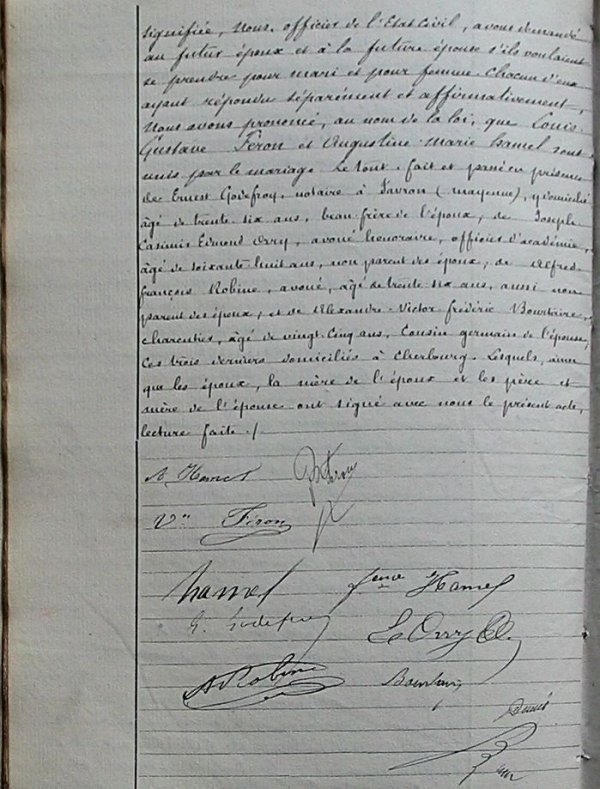 signifiée, Nous, officier de l'Etat Civil, avons demandé
au futur époux et à la future épouse s'ils voulaient
se prendre pour mari et pour femme. Chacun d'eux
ayant répondu séparément et affirmativement,
Nous avons prononcé, au nom de la loi, que Louis
Gustave Féron et Augustine Marie Hamel sont
unis par le mariage. Le tout fait et passé en présence
de Ernest Godefroy, notaire à Javron (Mayenne), y domicilié
âgé de trente six ans, beau frère de l'époux, de Joseph
Casimir Edmond Orry, avoué honoraire, officier d'académie,
âgé de soixante huit ans, non parent des époux, de Alfred
François Robine, avoué, âgé de trente six ans, aussi non
parent des époux, et de Alexandre Victor Frédéric Bourtaire,
charentier, âgé de vingt-cinq ans, Cousin germain de l'épouse,
Ces trois derniers domiciliés à Cherbourg. Lesquels, ainsi
que les époux, la mère de l'époux et les père et
mère de l'épouse ont signé avec nous le présent acte,
lecture faite./
A. Hamel
Vve Féron
Hamel Hamel
E. Godefroy E Orry
A Robine